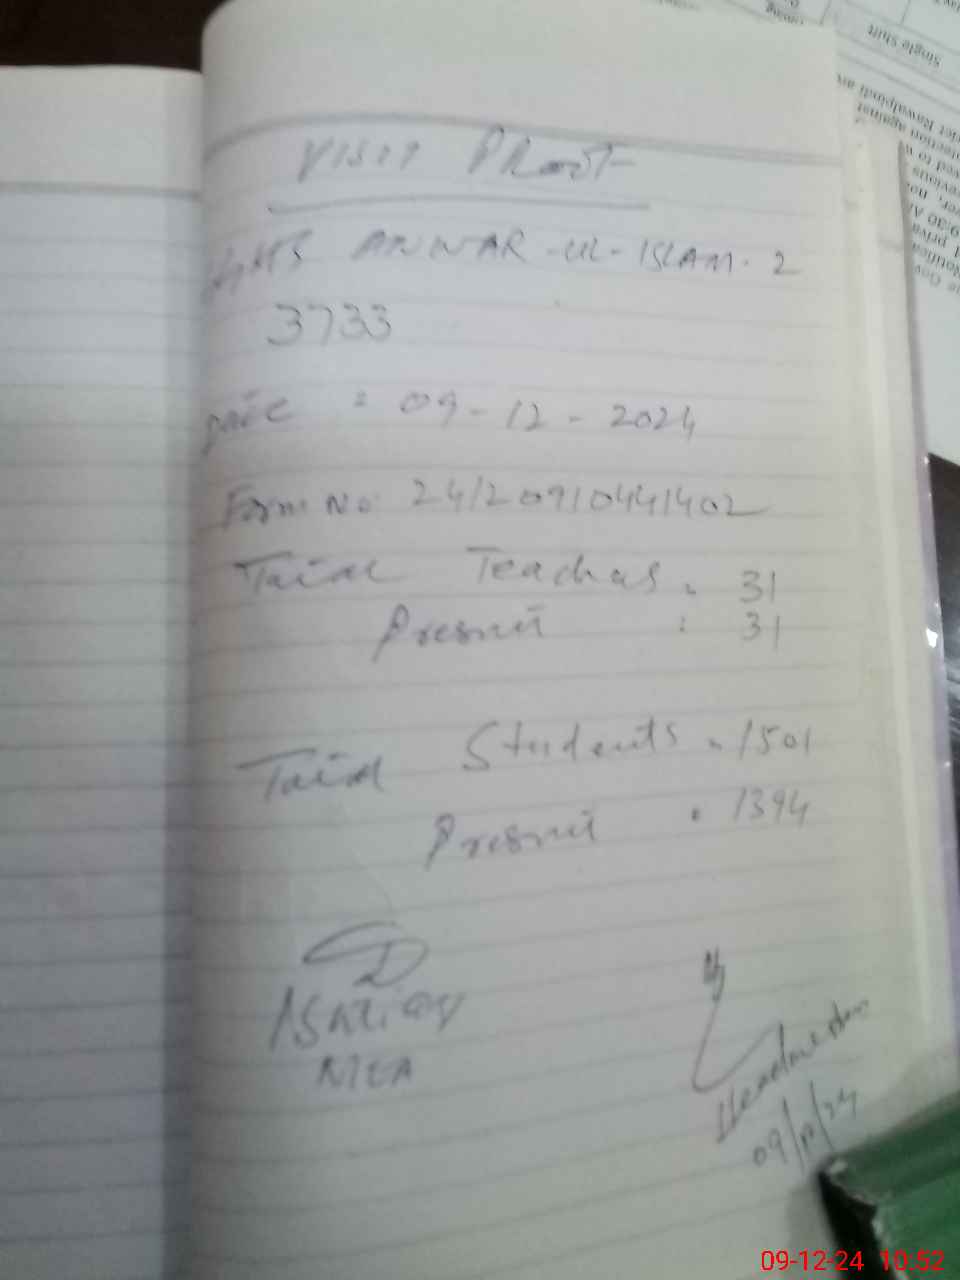 VISIT PROOF
GHS ANWAR-UL-ISLAM-2
3733
Date : 09-12-2024
Form No: 24120910441402
Total Teachers : 31
Present : 31
Total Students : 1501
Present : 1394
Ishtiaq
MEA
Headmaster
09/12/24
09-12-24 10:52
Single Shift